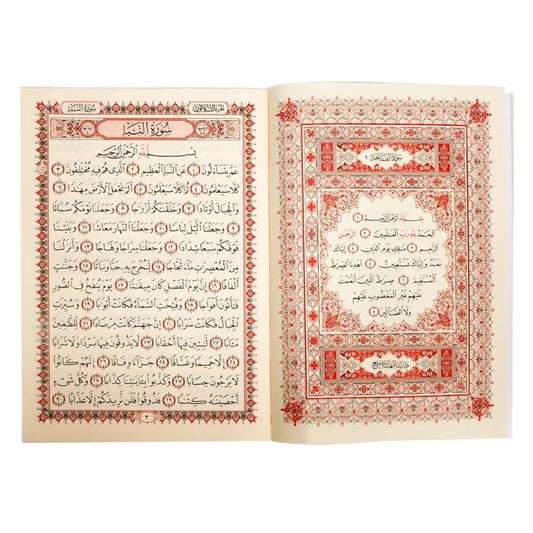 سورة الفاتحة ١
بِسْمِ اللَّهِ الرَّحْمَٰنِ الرَّحِيمِ ١
الْحَمْدُ لِلَّهِ رَبِّ الْعَالَمِينَ ٢ الرَّحْمَٰنِ
الرَّحِيمِ ٣ مَالِكِ يَوْمِ الدِّينِ ٤ إِيَّاكَ
نَعْبُدُ وَإِيَّاكَ نَسْتَعِينُ ٥ اهْدِنَا الصِّرَاطَ
الْمُسْتَقِيمَ ٦ صِرَاطَ الَّذِينَ أَنْعَمْتَ
عَلَيْهِمْ غَيْرِ الْمَغْضُوبِ عَلَيْهِمْ
وَلَا الضَّالِّينَ ٧
الجزء الثلاثون سورة النبأ
سورة النبأ
بِسْمِ اللَّهِ الرَّحْمَٰنِ الرَّحِيمِ
عَمَّ يَتَسَاءَلُونَ ١ عَنِ النَّبَإِ الْعَظِيمِ ٢ الَّذِي هُمْ فِيهِ مُخْتَلِفُونَ ٣
كَلَّا سَيَعْلَمُونَ ٤ ثُمَّ كَلَّا سَيَعْلَمُونَ ٥ أَلَمْ نَجْعَلِ الْأَرْضَ مِهَادًا ٦
وَالْجِبَالَ أَوْتَادًا ٧ وَخَلَقْنَاكُمْ أَزْوَاجًا ٨ وَجَعَلْنَا نَوْمَكُمْ سُبَاتًا
٩ وَجَعَلْنَا اللَّيْلَ لِبَاسًا ١٠ وَجَعَلْنَا النَّهَارَ مَعَاشًا ١١ وَبَنَيْنَا
فَوْقَكُمْ سَبْعًا شِدَادًا ١٢ وَجَعَلْنَا سِرَاجًا وَهَّاجًا ١٣ وَأَنْزَلْنَا
مِنَ الْمُعْصِرَاتِ مَاءً ثَجَّاجًا ١٤ لِنُخْرِجَ بِهِ حَبًّا وَنَبَاتًا ١٥ وَجَنَّاتٍ
أَلْفَافًا ١٦ إِنَّ يَوْمَ الْفَصْلِ كَانَ مِيقَاتًا ١٧ يَوْمَ يُنْفَخُ فِي الصُّورِ
فَتَأْتُونَ أَفْوَاجًا ١٨ وَفُتِحَتِ السَّمَاءُ فَكَانَتْ أَبْوَابًا ١٩ وَسُيِّرَتِ
الْجِبَالُ فَكَانَتْ سَرَابًا ٢٠ إِنَّ جَهَنَّمَ كَانَتْ مِرْصَادًا ٢١ لِلطَّاغِينَ
مَآبًا ٢٢ لَابِثِينَ فِيهَا أَحْقَابًا ٢٣ لَا يَذُوقُونَ فِيهَا بَرْدًا وَلَا شَرَابًا
٢٤ إِلَّا حَمِيمًا وَغَسَّاقًا ٢٥ جَزَاءً وِفَاقًا ٢٦ إِنَّهُمْ كَانُوا
لَا يَرْجُونَ حِسَابًا ٢٧ وَكَذَّبُوا بِآيَاتِنَا كِذَّابًا ٢٨ وَكُلَّ شَيْءٍ
أَحْصَيْنَاهُ كِتَابًا ٢٩ فَذُوقُوا فَلَنْ نَزِيدَكُمْ إِلَّا عَذَابًا ٣٠
٢